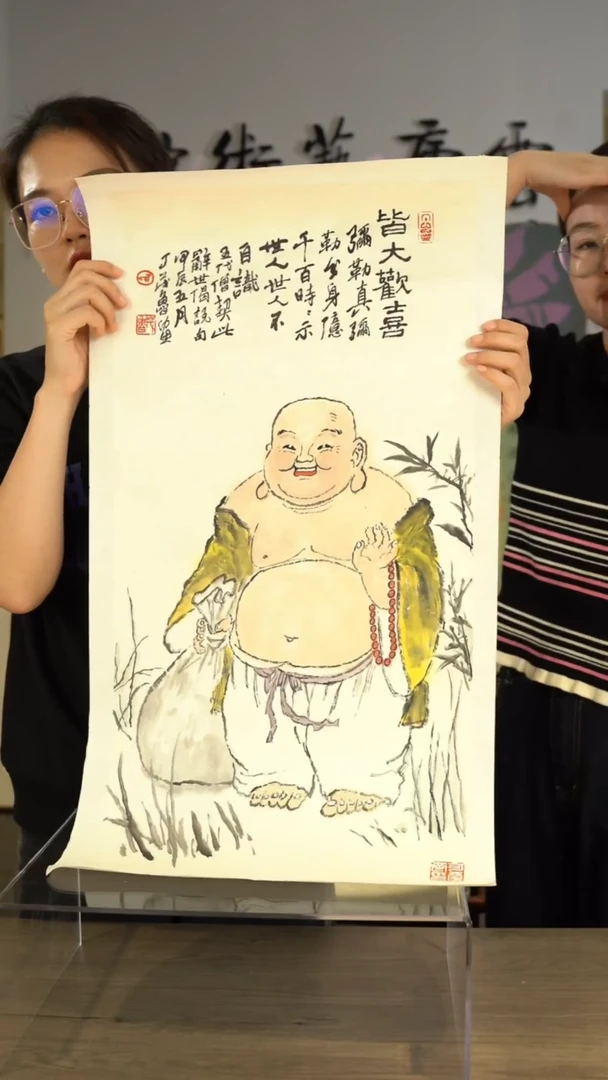 皆大歡喜
彌勒真彌
勒分身億
千百時〻示
世人世人不
自識
五代僧契此
辭世偈
甲辰五月
雲 術